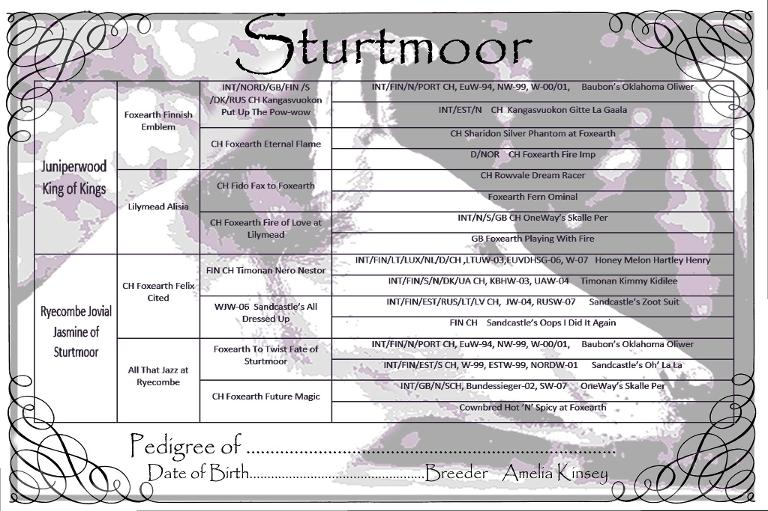 Sturtmoor
Juniperwood
King of Kings
Foxearth Finnish
Emblem
INT/NORD/GB/FIN /S
/DK/RUS CH Kangasvuokon
Put Up The Pow-wow
INT/FIN/N/PORT CH, EuW-94, NW-99, W-00/01, Baubon's Oklahoma Oliwer
INT/EST/N CH Kangasvuokon Gitte La Gaala
CH Foxearth Eternal Flame
CH Sharidon Silver Phantom at Foxearth
D/NOR CH Foxearth Fire Imp
Lilymead Alisia
CH Fido Fax to Foxearth
CH Rowvale Dream Racer
Foxearth Fern Ominal
CH Foxearth Fire of Love at
Lilymead
INT/N/S/GB CH OneWay's Skalle Per
GB Foxearth Playing With Fire
Ryecombe Jovial
Jasmine of
Sturtmoor
CH Foxearth Felix
Cited
FIN CH Timonan Nero Nestor
INT/FIN/LT/LUX/NL/D/CH ,LTUW-03,EUVDHSG-06, W-07 Honey Melon Hartley Henry
INT/FIN/S/N/DK/UA CH, KBHW-03, UAW-04 Timonan Kimmy Kidilee
WJW-06 Sandcastle's All
Dressed Up
INT/FIN/EST/RUS/LT/LV CH, JW-04, RUSW-07 Sandcastle's Zoot Suit
FIN CH Sandcastle's Oops I Did It Again
All That Jazz at
Ryecombe
Foxearth To Twist Fate of
Sturtmoor
INT/FIN/N/PORT CH, EuW-94, NW-99, W-00/01, Baubon's Oklahoma Oliwer
INT/FIN/EST/S CH, W-99, ESTW-99, NORDW-01 Sandcastle's Oh' La La
CH Foxearth Future Magic
INT/GB/N/SCH, Bundessieger-02, SW-07 OneWay's Skalle Per
Cownbred Hot 'N' Spicy at Foxearth
Pedigree of ................................................................
Date of Birth..........................................Breeder Amelia Kinsey